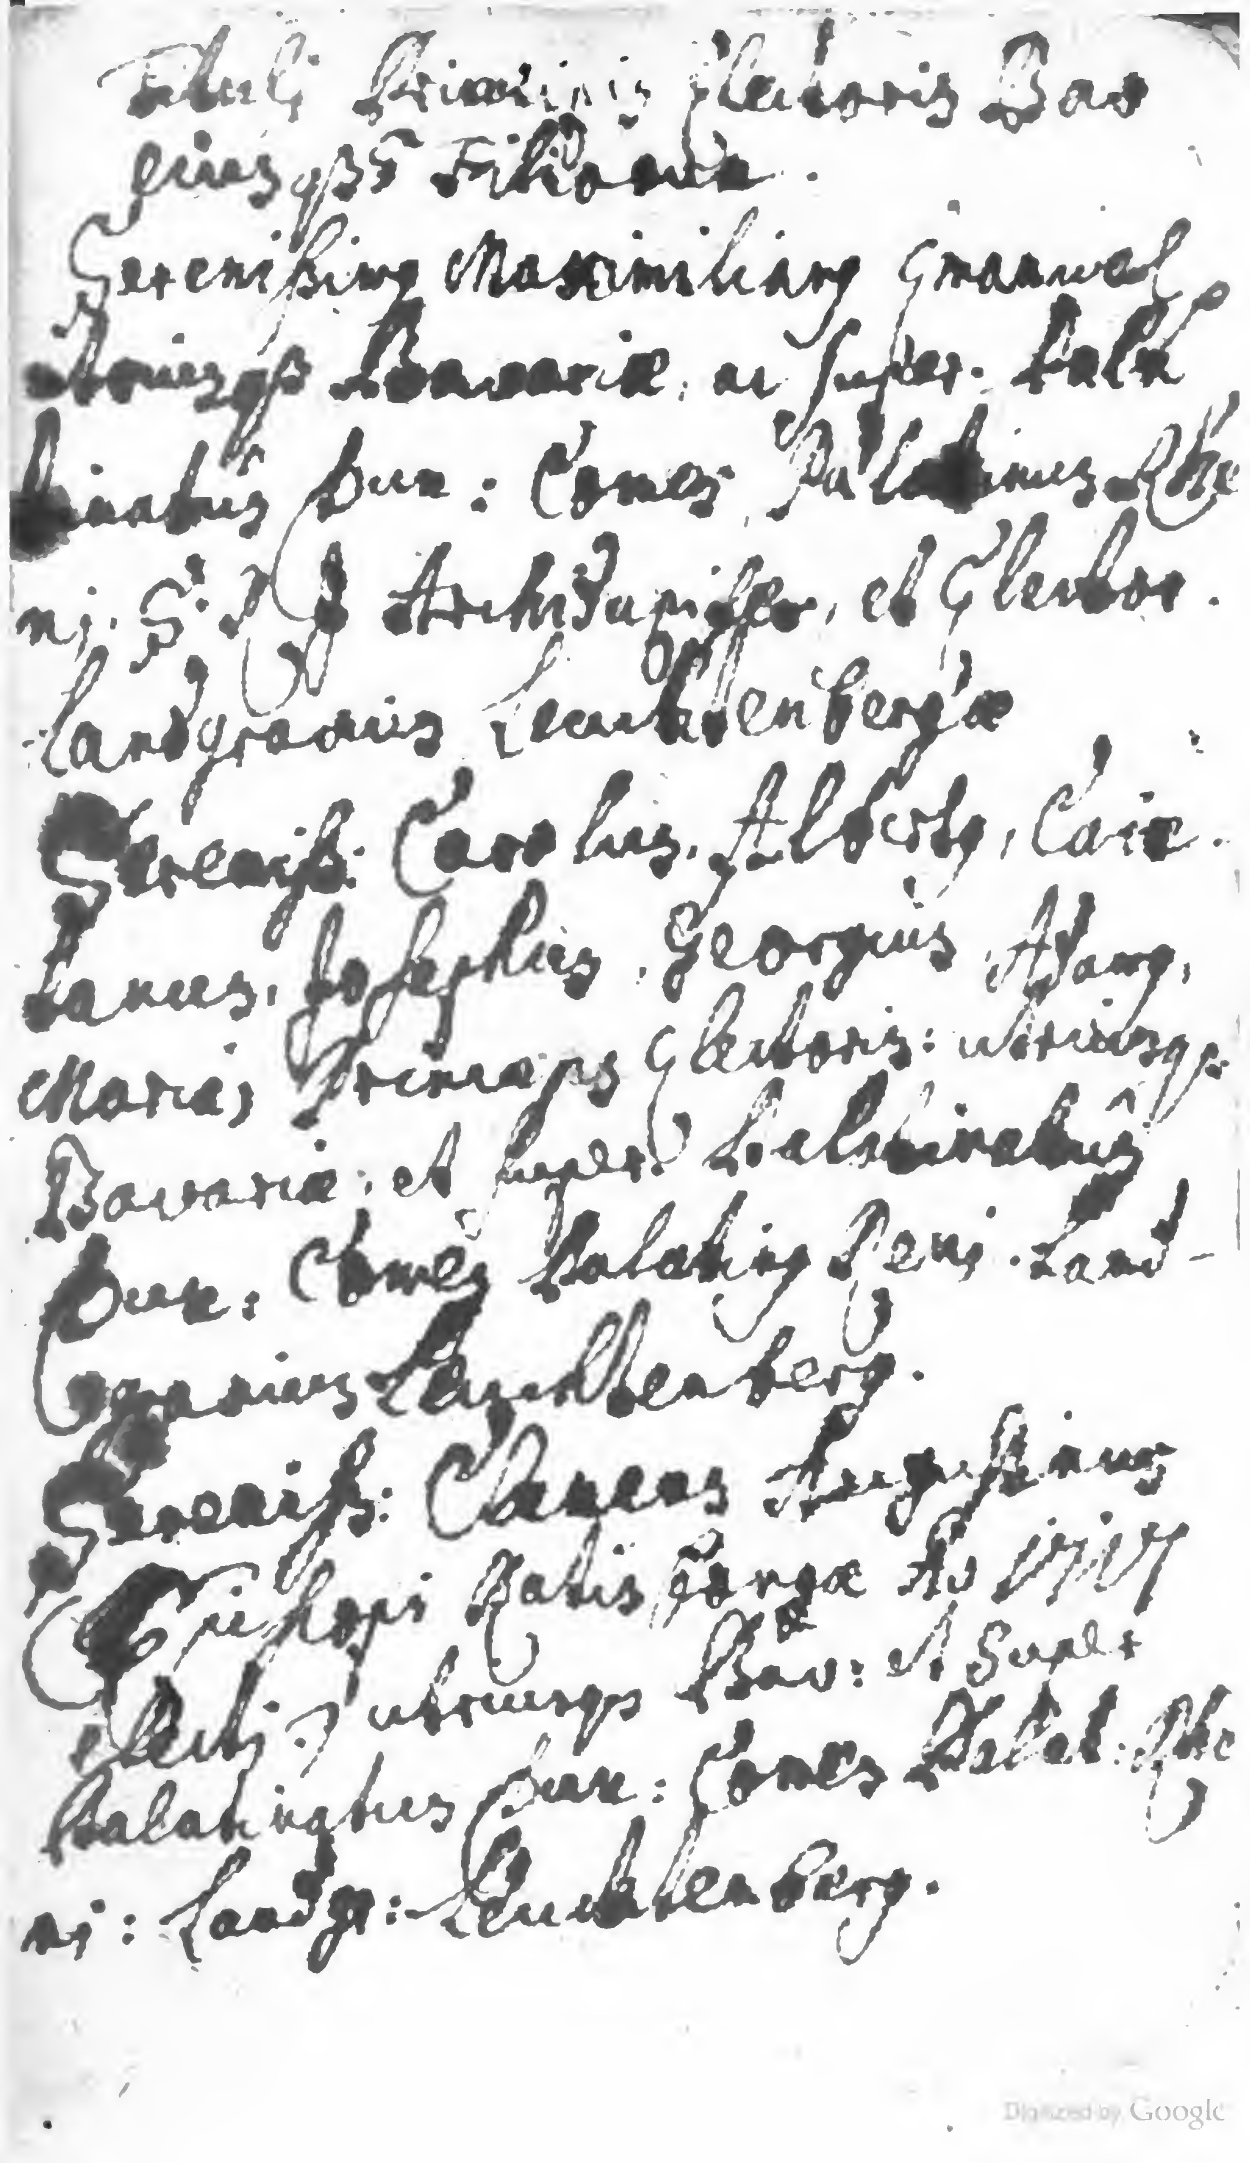 Tituli Principis Electoris Bav
eiusqz Filiorum.
Serenissimq Maximilianq Emanuel
utriusqz Bavariæ, ac super. Pala
tinatus Dux: Comes Palatinus Rhe
nj. S. R. J Archidapifer, et Elector.
Landgravius Leuchtenbergæ
Sereniss: Carolus, Albertq, Caie
tanus, Josephus, Georgius, Adamq,
Maria, Princeps Electoris: utriusqz
Bavariæ, et super. Palatinatus
Dux: Comes Palatinq Reni. Land-
gravius Leuchtenberg.
Sereniss: Clemens Augustinus
Episcopi Ratis, Ao 1717
Electi, utriusqz Bav: et Super
Palatinatus Dux: Comes Palat: Rhe
nj: Landgr: Leuchtenberg.
Digitized by Google